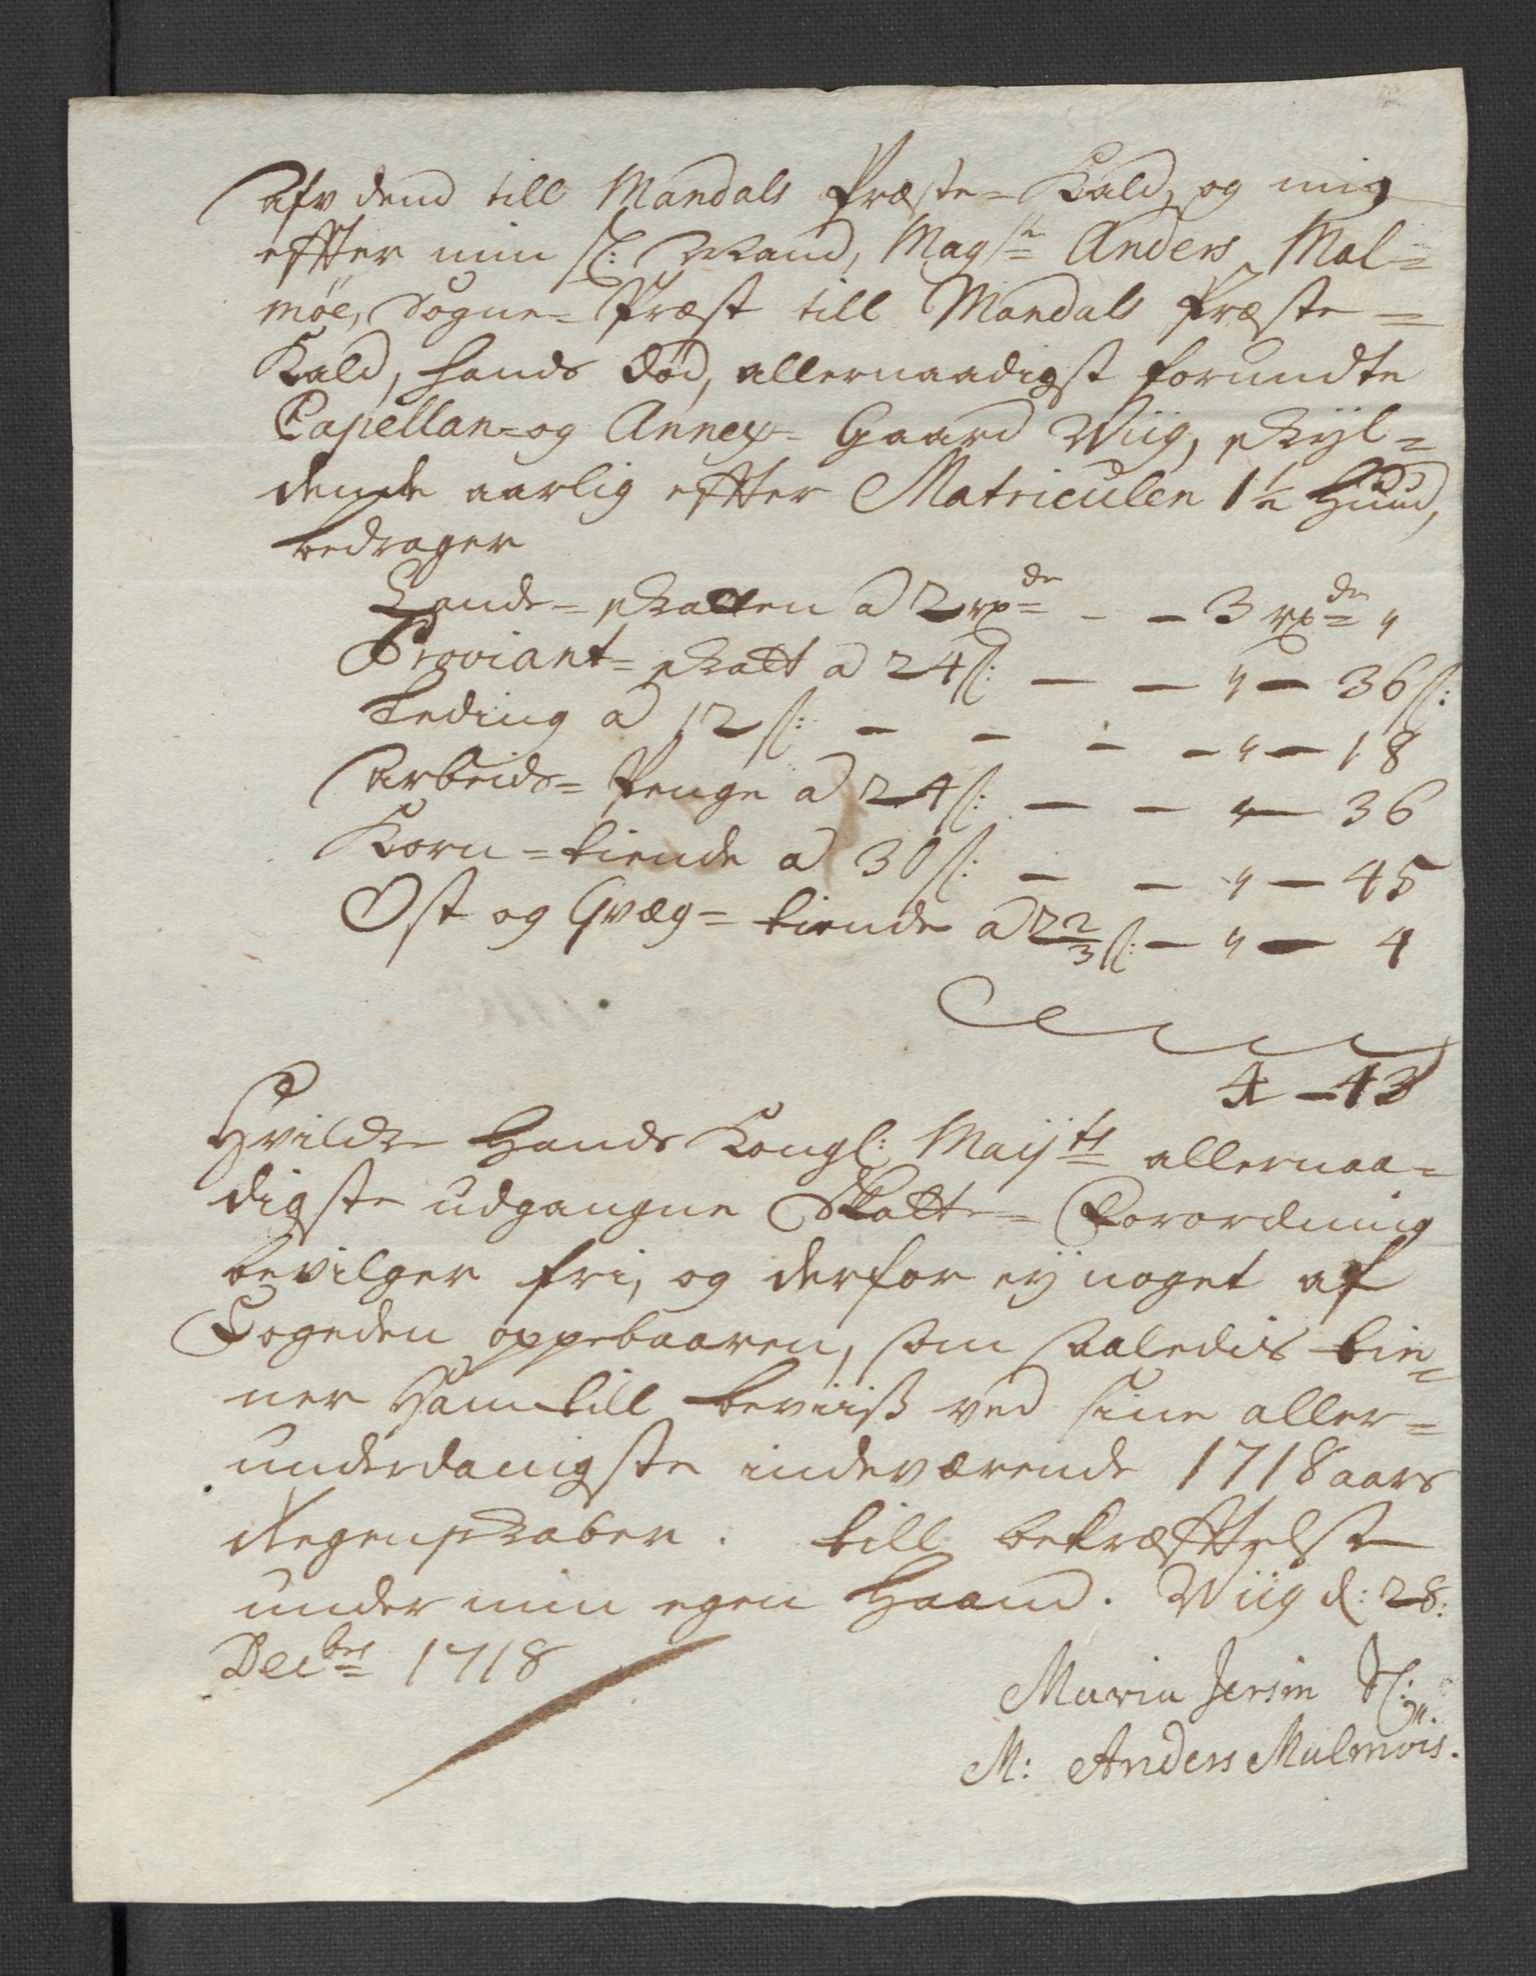 Afv dend till Mandals Præste- Kald, og mig
effter min Sl: Mand, Magsr Anders Mal-
möe, Sogne- Præst till Mandals Præste-
Kald, hands död, allernaadigst forundte
Capellan- og Annex- Gaard Wiig, skyl-
dende aarlig effter Matriculen 1½ Huud,
bedrager
Lands- skatten a 2 rxdr - - 3 rxdr "
Proviant- skatt a 24 s: — — " — 36 s:
Leding a 12 s: — — — — " — 18
Arbeids- Penge a 24 s: — — " — 36
Korn- tiende a 30 s: — — " — 45
Ost og Qvæg- tiende a 2 2/3 s: — " — 4
4 — 43
Hvilde Hands Kongl: Maijts allernaa-
digste udgangne Skatte- Forordning
bevilger fri, og derfor eij noget af
Fogeden oppebaaren, som saaledis tie-
ner Ham till beviiß ved sine aller-
underdanigste indeværende 1718 aars
Regenskaber. till bekræfftelse
under min egen Haand. Wiig d: 28:
Decbrs 1718
Maria Jersin Sl:
M: Anders Malmöis.